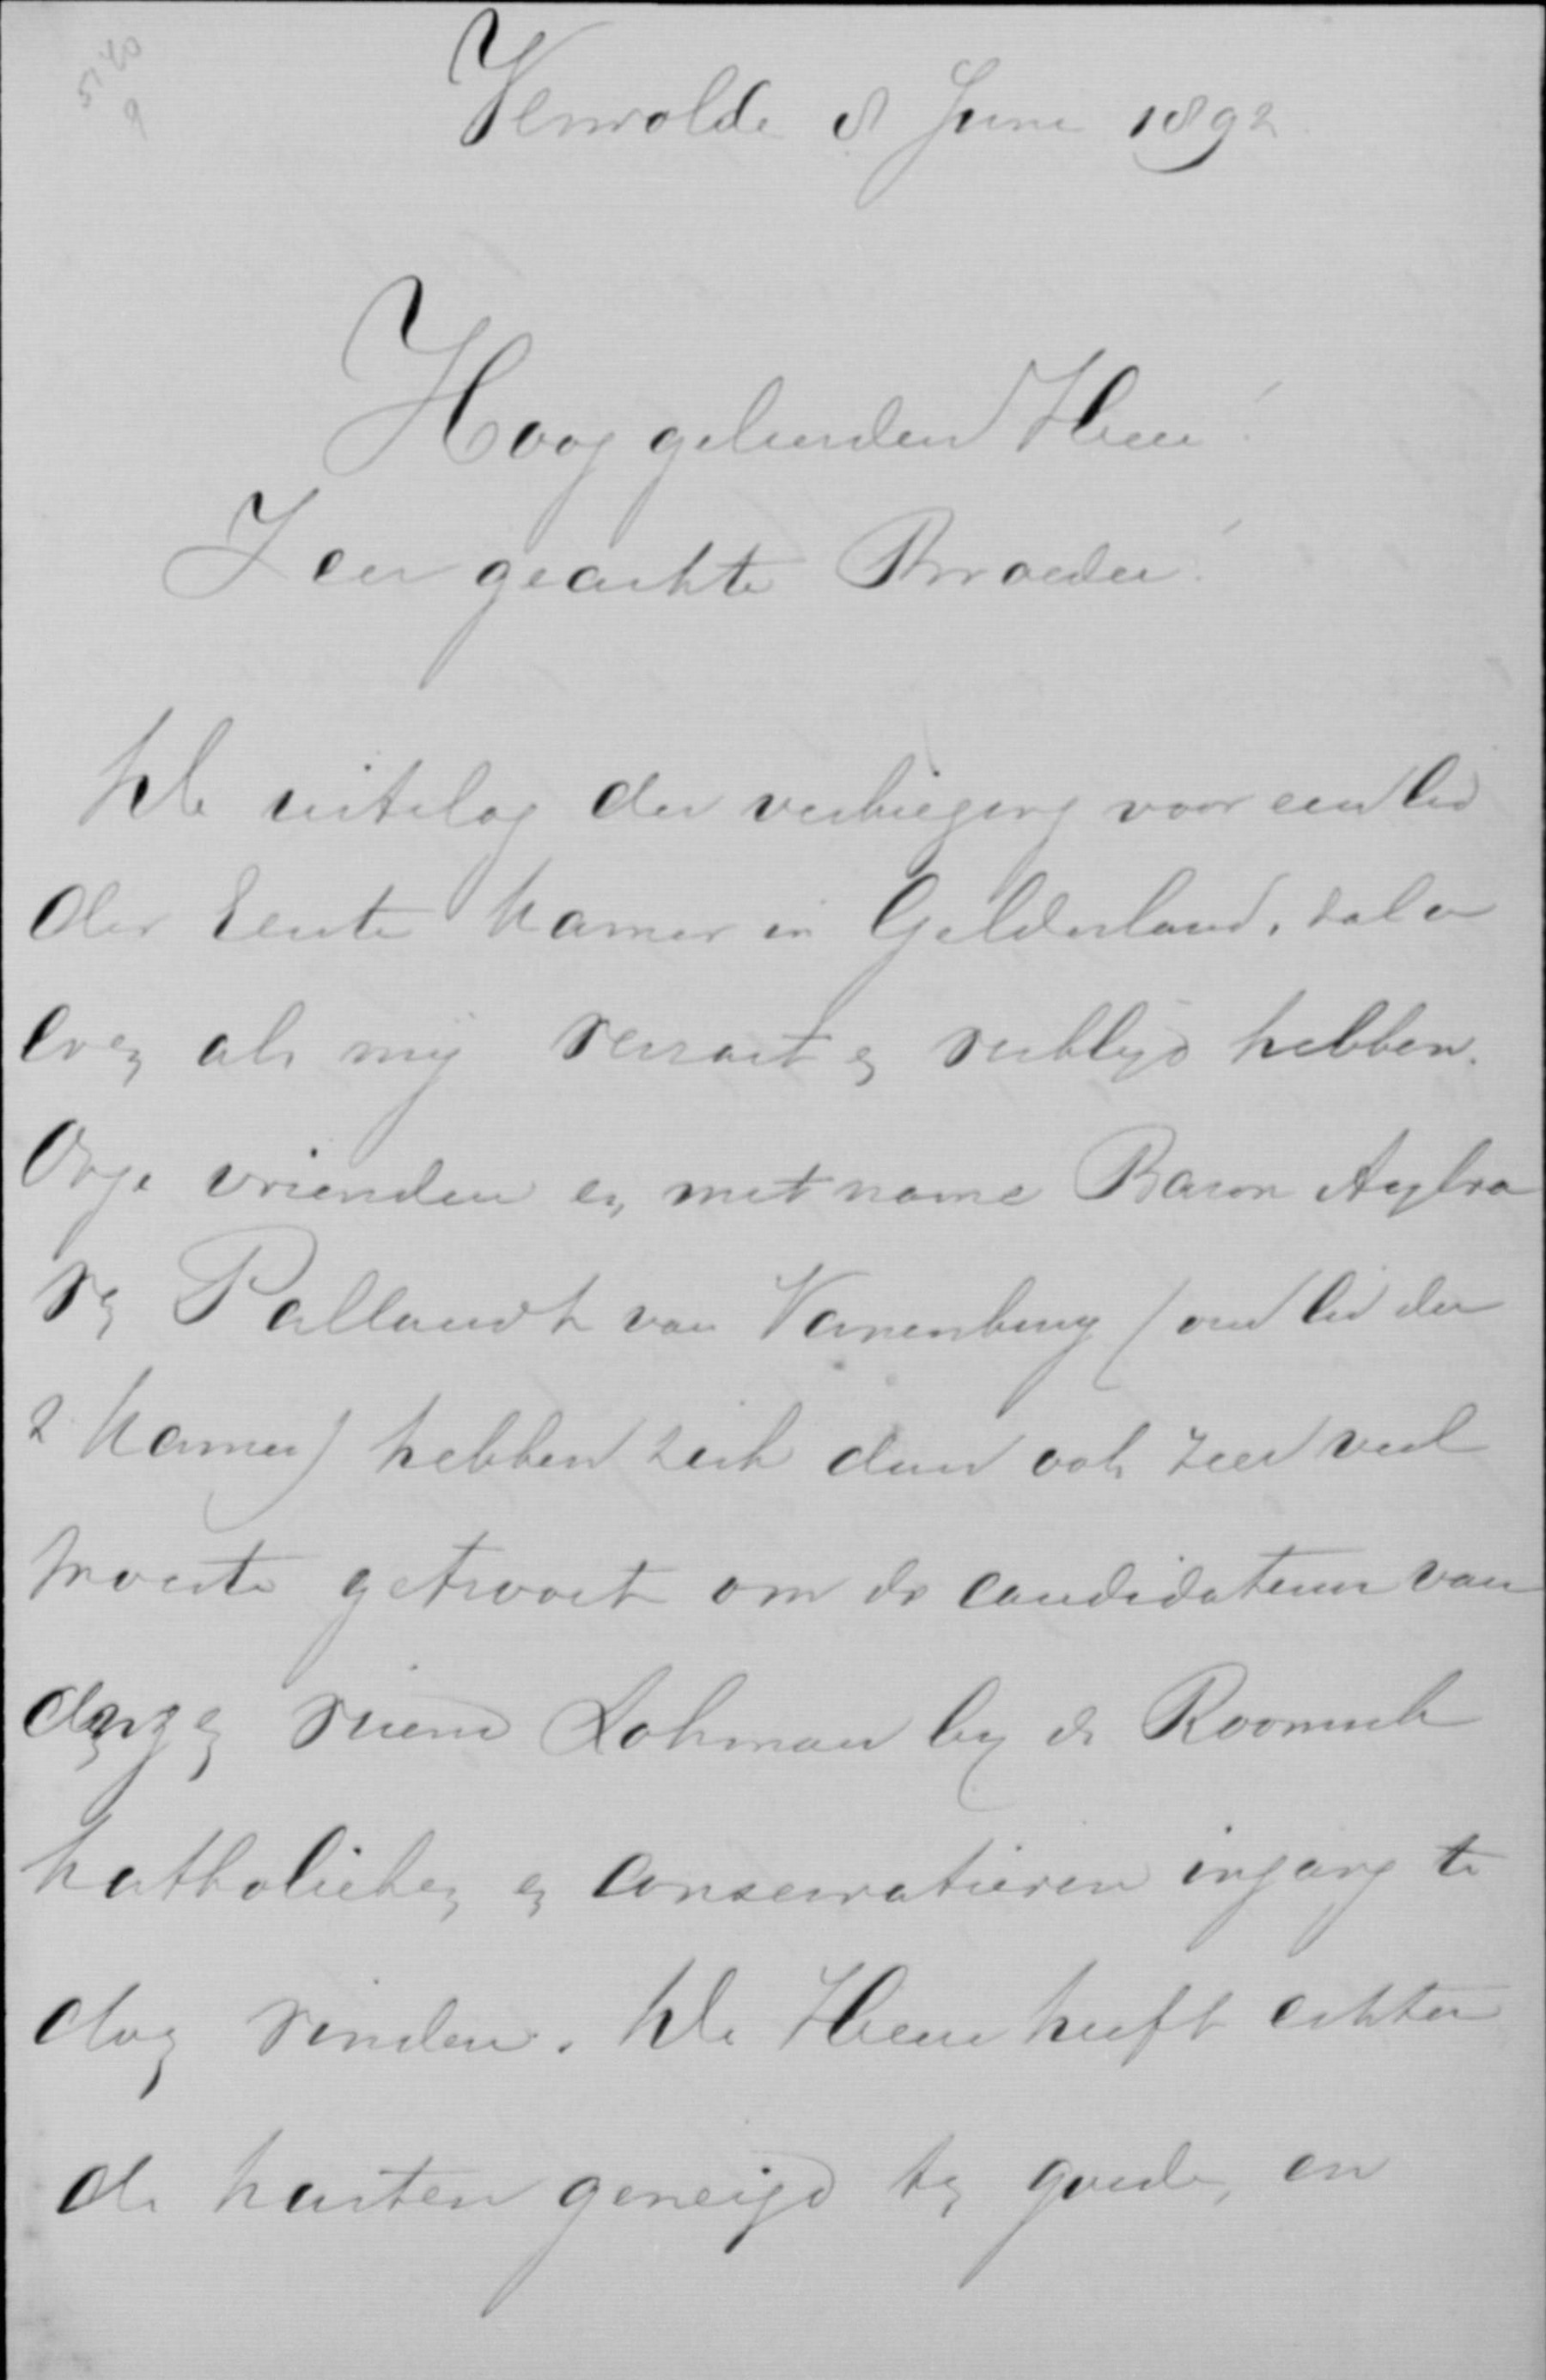 5140
9
Verwolde 8 Juni 1892
Hooggeleerden Heer!
Zeer geachte Broeder!
De uitslag der verkiezing voor een lid
der Eerste Kamer in Gelderland, zal u
even als mij verrast en verblijd hebben.
Onze vrienden en met name Baron Aylva
v Pallandt van Vanenburg (oud lid der
2 Kamer) hebben zich dan ook zeer veel
moeite getroost om de candidatuur van
onzen vriend Lohman bij de Roomsch
Katholieken en conservatieven ingang te
doen vinden. De Heer heeft echter
de harten geneigd ten goede, en